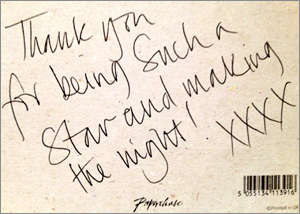 Thank you
for being such a
Star and making
the night! XXXX
Paperchase
5 055134 113916
©Printed in UK